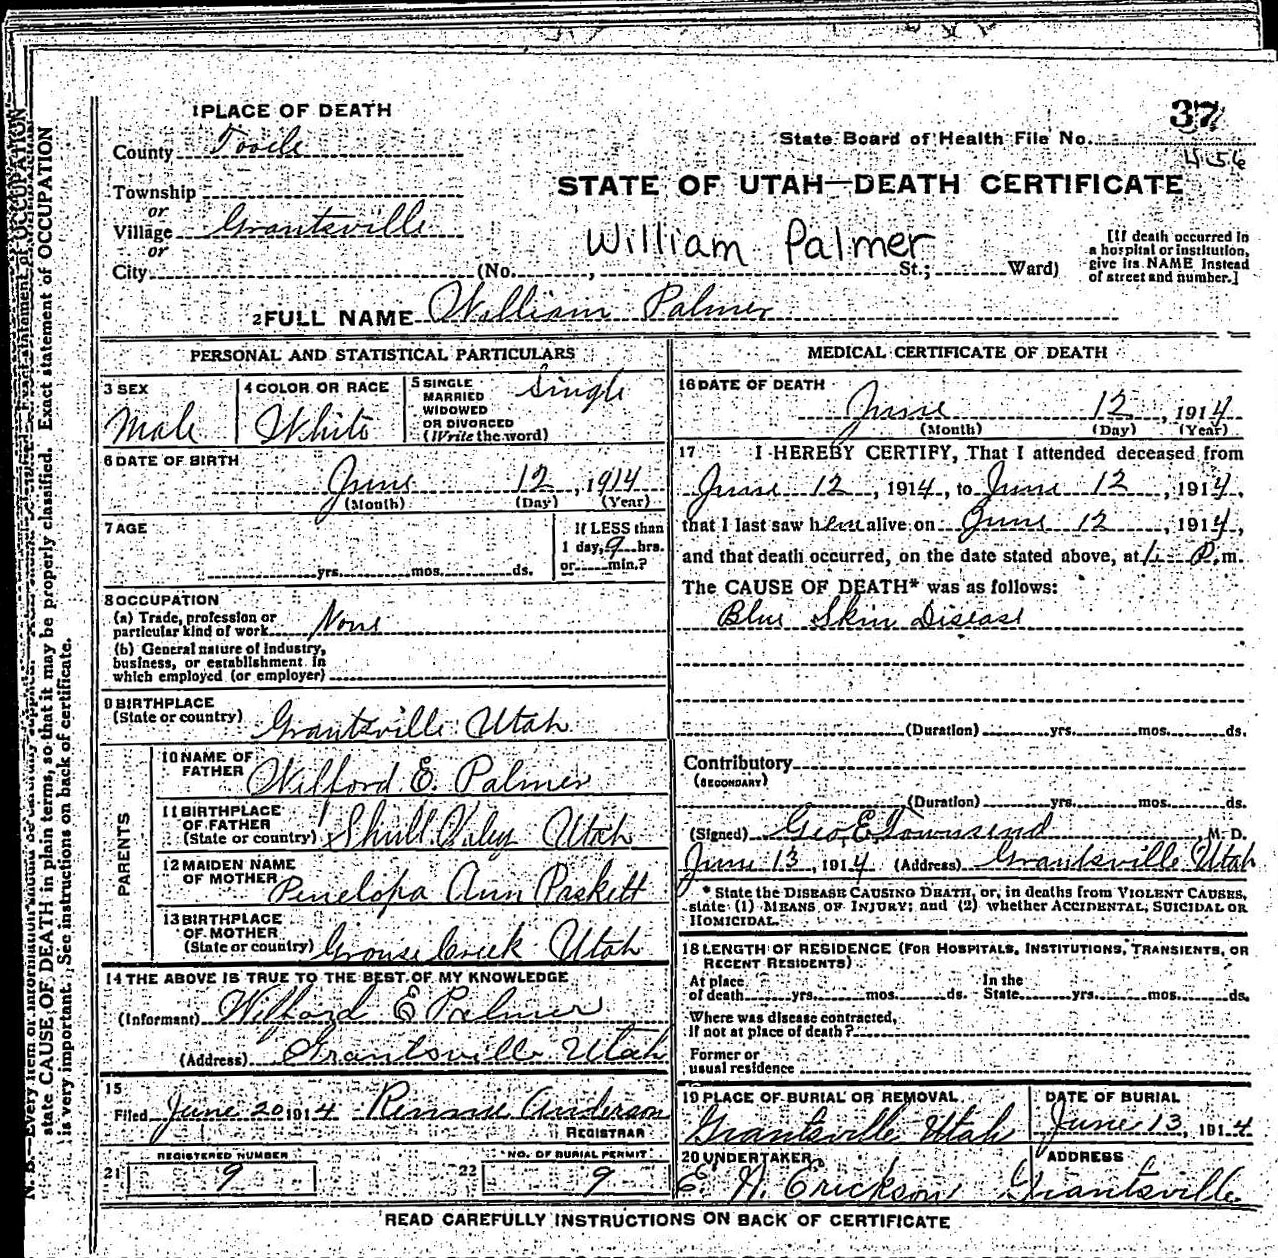 1 PLACE OF DEATH
37
County Tooele
State Board of Health File No.
Township
or
STATE OF UTAH—DEATH CERTIFICATE
Village Grantsville
or
William Palmer
[If death occurred in
a hospital or institution,
give its NAME instead
of street and number.]
City (No. , St.; Ward)
2 FULL NAME William Palmer
PERSONAL AND STATISTICAL PARTICULARS
3 SEX
Male
4 COLOR OR RACE
White
5 SINGLE
MARRIED
WIDOWED
OR DIVORCED
(Write the word)
Single
6 DATE OF BIRTH
June 12, 1914
(Month) (Day) (Year)
7 AGE
yrs. mos. ds.
If LESS than
1 day, 9 hrs.
or min.?
8 OCCUPATION
(a) Trade, profession or
particular kind of work None
(b) General nature of Industry,
business, or establishment in
which employed (or employer)
9 BIRTHPLACE
(State or country) Grantsville Utah
PARENTS
10 NAME OF
FATHER Wilford E. Palmer
11 BIRTHPLACE
OF FATHER
(State or country) Skull Utah
12 MAIDEN NAME
OF MOTHER Penelopa Ann Paskett
13 BIRTHPLACE
OF MOTHER
(State or country) Grouse Creek Utah
14 THE ABOVE IS TRUE TO THE BEST OF MY KNOWLEDGE
(Informant) Wilford E Palmer
(Address) Grantsville Utah
15
Filed June 20 1914 Anderson
REGISTRAR
REGISTERED NUMBER
21 9
NO. OF BURIAL PERMIT
22 9
MEDICAL CERTIFICATE OF DEATH
16 DATE OF DEATH
June 12, 1914
(Month) (Day) (Year)
17 I HEREBY CERTIFY, That I attended deceased from
June 12, 1914, to June 12, 1914,
that I last saw him alive on June 12, 1914,
and that death occurred, on the date stated above, at P. m.
The CAUSE OF DEATH* was as follows:
Blue Skin Disease
(Duration) yrs. mos. ds.
Contributory
(SECONDARY)
(Duration) yrs. mos. ds.
(Signed) Geo. E. Townsend, M. D.
June 13, 1914 (Address) Grantsville Utah
* State the DISEASE CAUSING DEATH, or, in deaths from VIOLENT CAUSES,
state (1) MEANS OF INJURY; and (2) whether ACCIDENTAL, SUICIDAL OR
HOMICIDAL.
18 LENGTH OF RESIDENCE (FOR HOSPITALS, INSTITUTIONS, TRANSIENTS, OR
RECENT RESIDENTS)
At place
of death yrs. mos. ds.
In the
State yrs. mos. ds.
Where was disease contracted,
If not at place of death?
Former or
usual residence
19 PLACE OF BURIAL OR REMOVAL
Grantsville Utah
DATE OF BURIAL
June 13, 1914
20 UNDERTAKER
E. N. Erickson
ADDRESS
Grantsville
READ CAREFULLY INSTRUCTIONS ON BACK OF CERTIFICATE
state CAUSE OF DEATH in plain terms, so that it may be properly classified. Exact statement of OCCUPATION
is very important. See instructions on back of certificate.